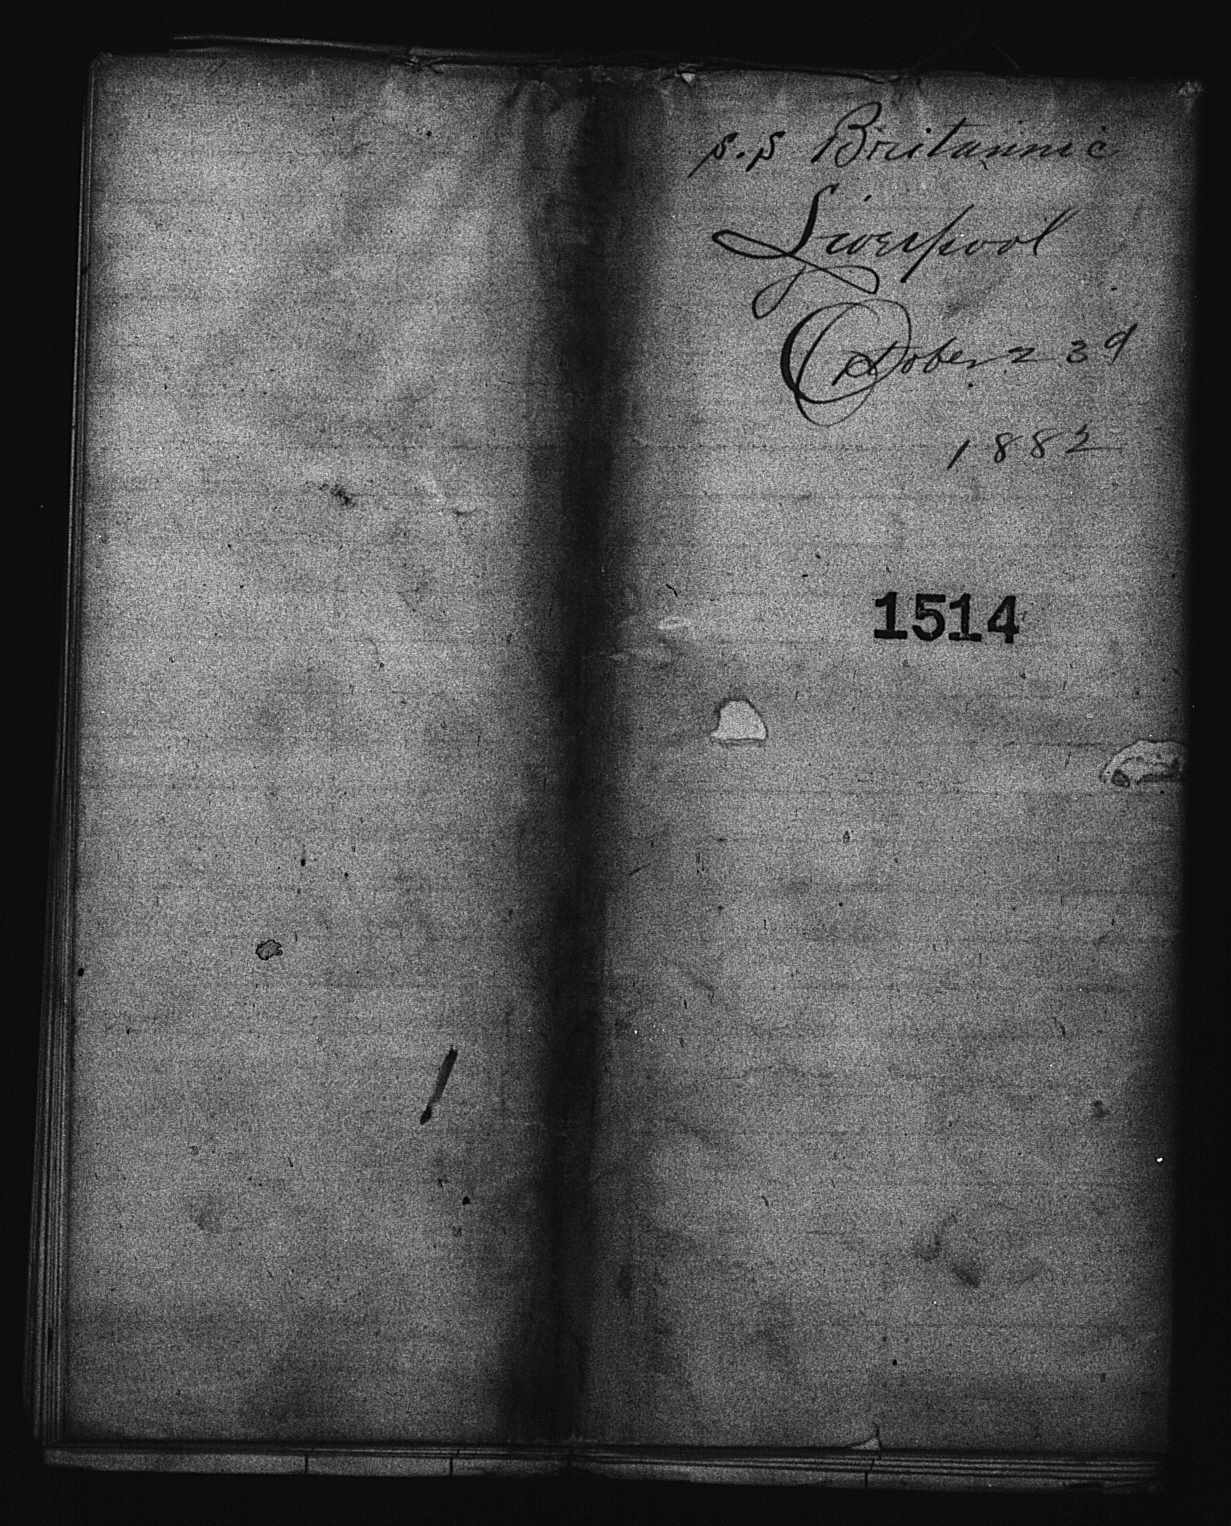 s.s Britannic
Liverpool
October 23d
1882
1514